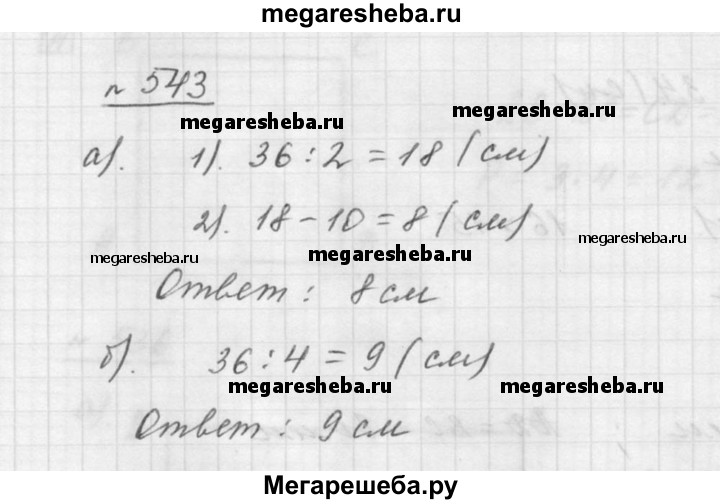 megaresheba.ru
№ 543
megaresheba.ru
megaresheba.ru
а). 1). 36 : 2 = 18 (см)
2). 18 - 10 = 8 (см)
megaresheba.ru
megaresheba.ru
megaresheba.ru
Ответ : 8 см
б). 36 : 4 = 9 (см)
megaresheba.ru
megaresheba.ru
Ответ : 9 см
Мегарешеба.ру